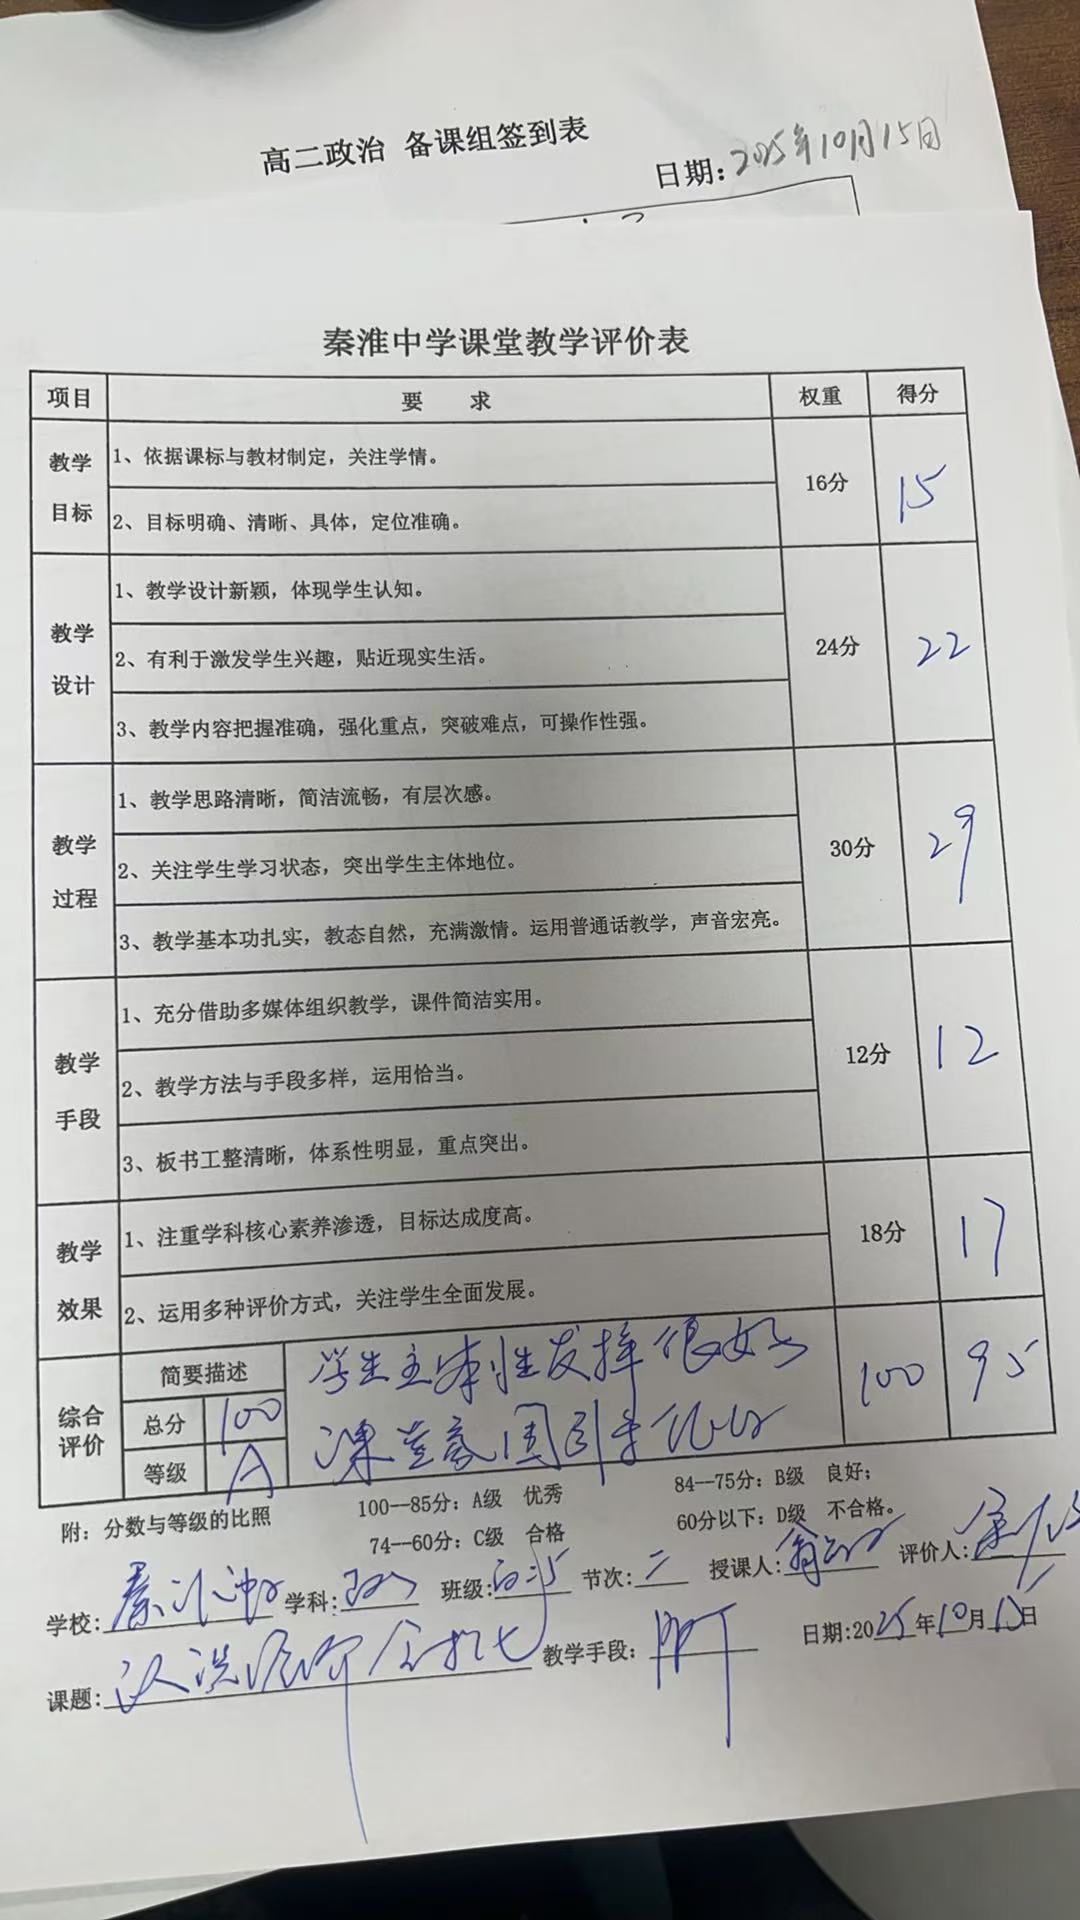 高二政治 备课组签到表
日期:2025年10月15日
秦淮中学课堂教学评价表
项目 要 求 权重 得分
教学目标 1、依据课标与教材制定，关注学情。 16分 15
2、目标明确、清晰、具体，定位准确。
教学设计 1、教学设计新颖，体现学生认知。 24分 22
2、有利于激发学生兴趣，贴近现实生活。
3、教学内容把握准确，强化重点，突破难点，可操作性强。
教学过程 1、教学思路清晰，简洁流畅，有层次感。 30分 29
2、关注学生学习状态，突出学生主体地位。
3、教学基本功扎实，教态自然，充满激情。运用普通话教学，声音宏亮。
教学手段 1、充分借助多媒体组织教学，课件简洁实用。 12分 12
2、教学方法与手段多样，运用恰当。
3、板书工整清晰，体系性明显，重点突出。
教学效果 1、注重学科核心素养渗透，目标达成度高。 18分 17
2、运用多种评价方式，关注学生全面发展。
综合评价 简要描述 学生主体性发挥很好 100 95
总分 100 课堂氛围
等级 A
附：分数与等级的比照 100--85分：A级 优秀 84--75分：B级 良好；
74--60分：C级 合格 60分以下：D级 不合格。
学校:秦淮中学 学科: 班级: 节次:二 授课人: 评价人:
课题: 教学手段: 日期:2025年10月15日